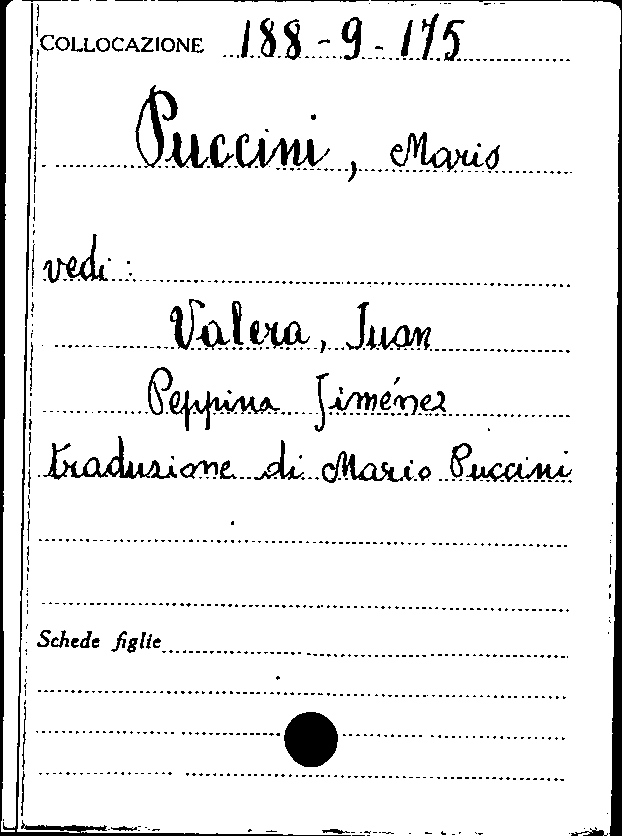 COLLOCAZIONE 188-9-175
Puccini, Mario
vedi:
Valera, Juan
Peppina Jiménez
traduzione di Mario Puccini
Schede figlie